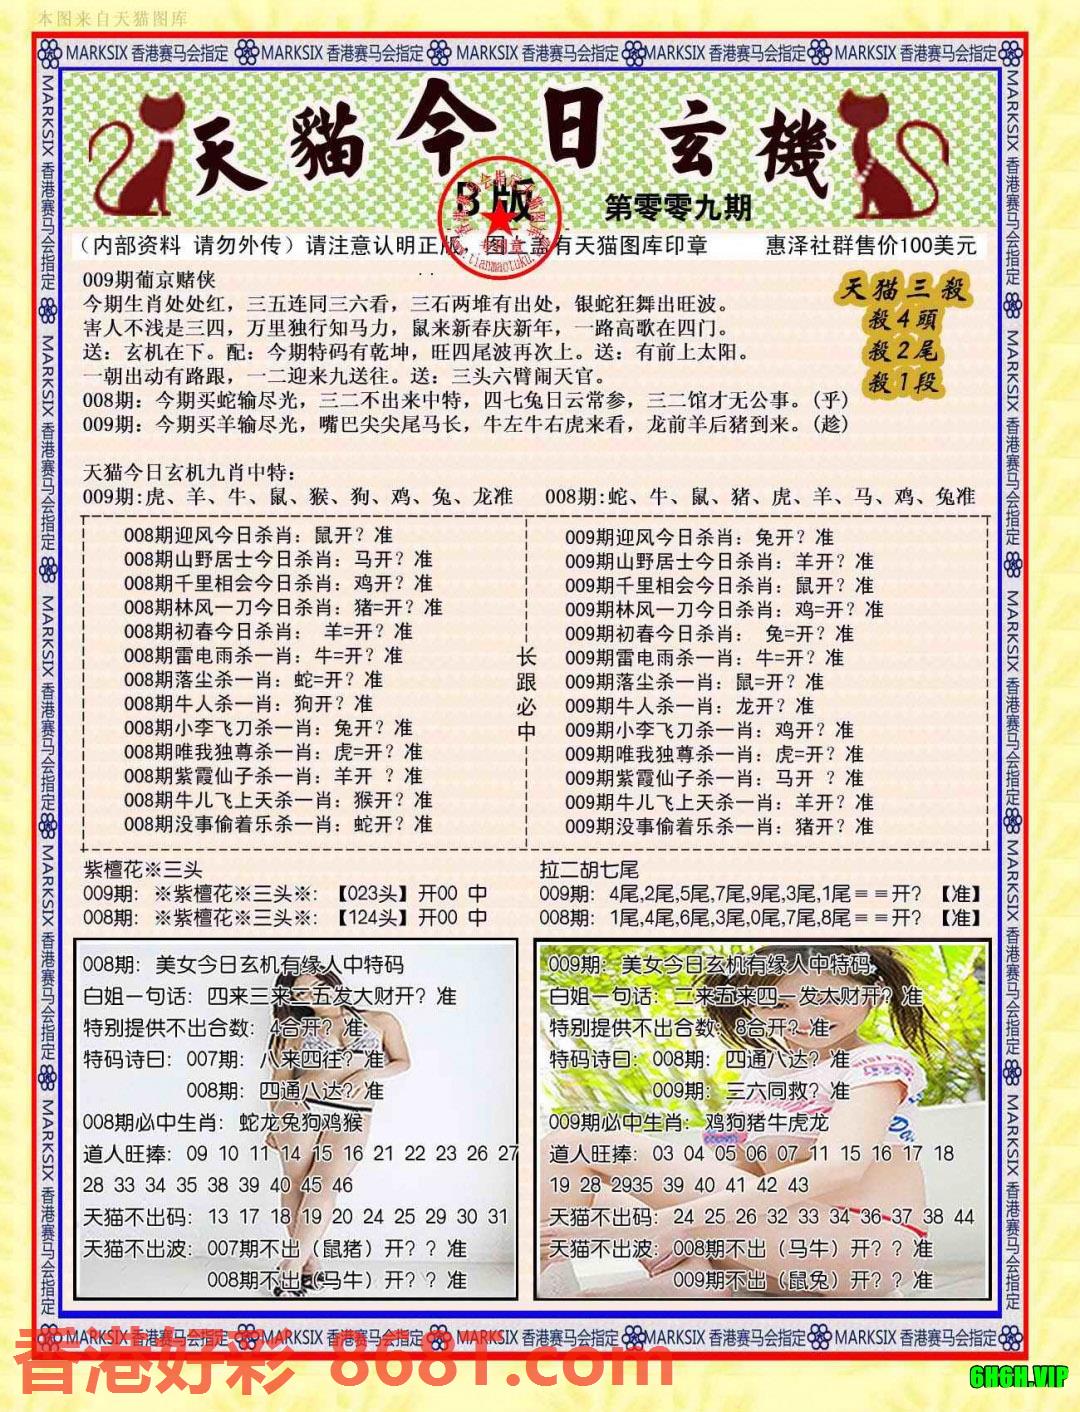 本图来自天猫图库
MARKSIX 香港赛马会指定 MARKSIX 香港赛马会指定 MARKSIX 香港赛马会指定 MARKSIX 香港赛马会指定 MARKSIX 香港赛马会指定
天貓今日玄機
B版
第零零九期
(内部资料 请勿外传) 请注意认明正版, 图上盖有天猫图库印章 惠泽社群售价100美元
www.tianmaotuku.com
009期葡京赌侠
今期生肖处处红，三五连同三六看，三石两堆有出处，银蛇狂舞出旺波。
害人不浅是三四，万里独行知马力，鼠来新春庆新年，一路高歌在四门。
送：玄机在下。配：今期特码有乾坤，旺四尾波再次上。送：有前上太阳。
一朝出动有路跟，一二迎来九送往。送：三头六臂闹天官。
008期：今期买蛇输尽光，三二不出来中特，四七兔日云常参，三二馆才无公事。(乎)
009期：今期买羊输尽光，嘴巴尖尖尾马长，牛左牛右虎来看，龙前羊后猪到来。(趁)
天猫三殺
殺4頭
殺2尾
殺1段
天猫今日玄机九肖中特：
009期:虎、羊、牛、鼠、猴、狗、鸡、兔、龙准 008期:蛇、牛、鼠、猪、虎、羊、马、鸡、兔准
008期迎风今日杀肖：鼠开？准
008期山野居士今日杀肖：马开？准
008期千里相会今日杀肖：鸡开？准
008期林风一刀今日杀肖：猪=开？准
008期初春今日杀肖： 羊=开？准
008期雷电雨杀一肖：牛=开？准
008期落尘杀一肖：蛇=开？准
008期牛人杀一肖：狗开？准
008期小李飞刀杀一肖：兔开？准
008期唯我独尊杀一肖：虎=开？准
008期紫霞仙子杀一肖：羊开 ？准
008期牛儿飞上天杀一肖：猴开？准
008期没事偷着乐杀一肖：蛇开？准
长跟必中
009期迎风今日杀肖：兔开？准
009期山野居士今日杀肖：羊开？准
009期千里相会今日杀肖：鼠开？准
009期林风一刀今日杀肖：鸡=开？准
009期初春今日杀肖： 兔=开？准
009期雷电雨杀一肖：牛=开？准
009期落尘杀一肖：鼠=开？准
009期牛人杀一肖：龙开？准
009期小李飞刀杀一肖：鸡开？准
009期唯我独尊杀一肖：虎=开？准
009期紫霞仙子杀一肖：马开 ？准
009期牛儿飞上天杀一肖：羊开？准
009期没事偷着乐杀一肖：猪开？准
紫檀花※三头
009期：※紫檀花※三头※:【023头】开00 中
008期：※紫檀花※三头※:【124头】开00 中
拉二胡七尾
009期：4尾,2尾,5尾,7尾,9尾,3尾,1尾==开？【准】
008期：1尾,4尾,6尾,3尾,0尾,7尾,8尾==开？【准】
008期：美女今日玄机有缘人中特码
白姐一句话：四来三来二五发大财开？准
特别提供不出合数：4合开？准
特码诗曰：007期：八来四往？准
008期：四通八达？准
008期必中生肖：蛇龙兔狗鸡猴
道人旺捧：09 10 11 14 15 16 21 22 23 26 27
28 33 34 35 38 39 40 45 46
天猫不出码：13 17 18 19 20 24 25 29 30 31
天猫不出波：007期不出（鼠猪）开？？准
008期不出（马牛）开？？准
009期：美女今日玄机有缘人中特码
白姐一句话：二来五来四一发大财开？准
特别提供不出合数：8合开？准
特码诗曰：008期：四通八达？准
009期：三六同救？准
009期必中生肖：鸡狗猪牛虎龙
道人旺捧：03 04 05 06 07 11 15 16 17 18
19 28 2935 39 40 41 42 43
天猫不出码：24 25 26 32 33 34 36 37 38 44
天猫不出波：008期不出（马牛）开？？准
009期不出（鼠兔）开？？准
MARKSIX 香港赛马会指定 MARKSIX 香港赛马会指定 MARKSIX 香港赛马会指定 MARKSIX 香港赛马会指定 MARKSIX 香港赛马会指定
香港好彩 8681.com
6H6H.VIP